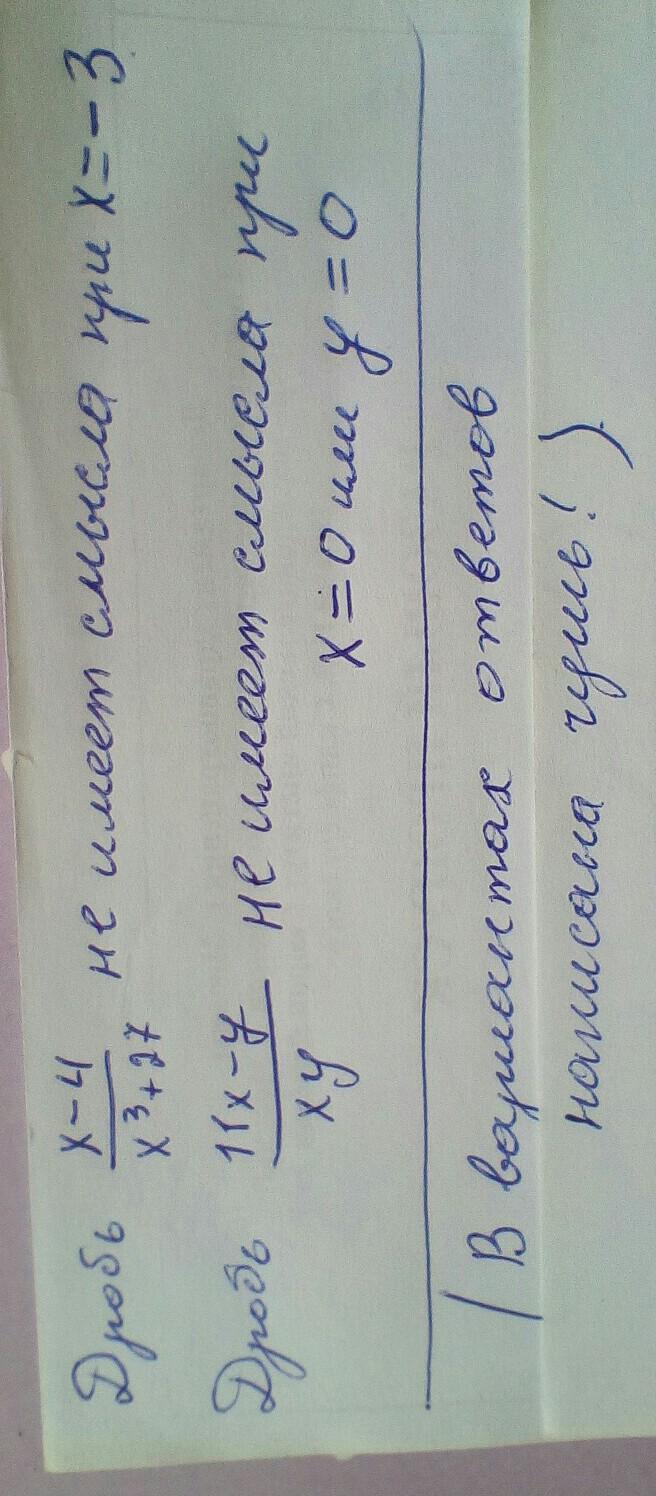 Дробь x-4/x³+27 не имеет смысла при x=-3
Дробь 11x-y/xy не имеет смысла при
x=0 или y=0
(В вариантах ответов
написана чушь!)